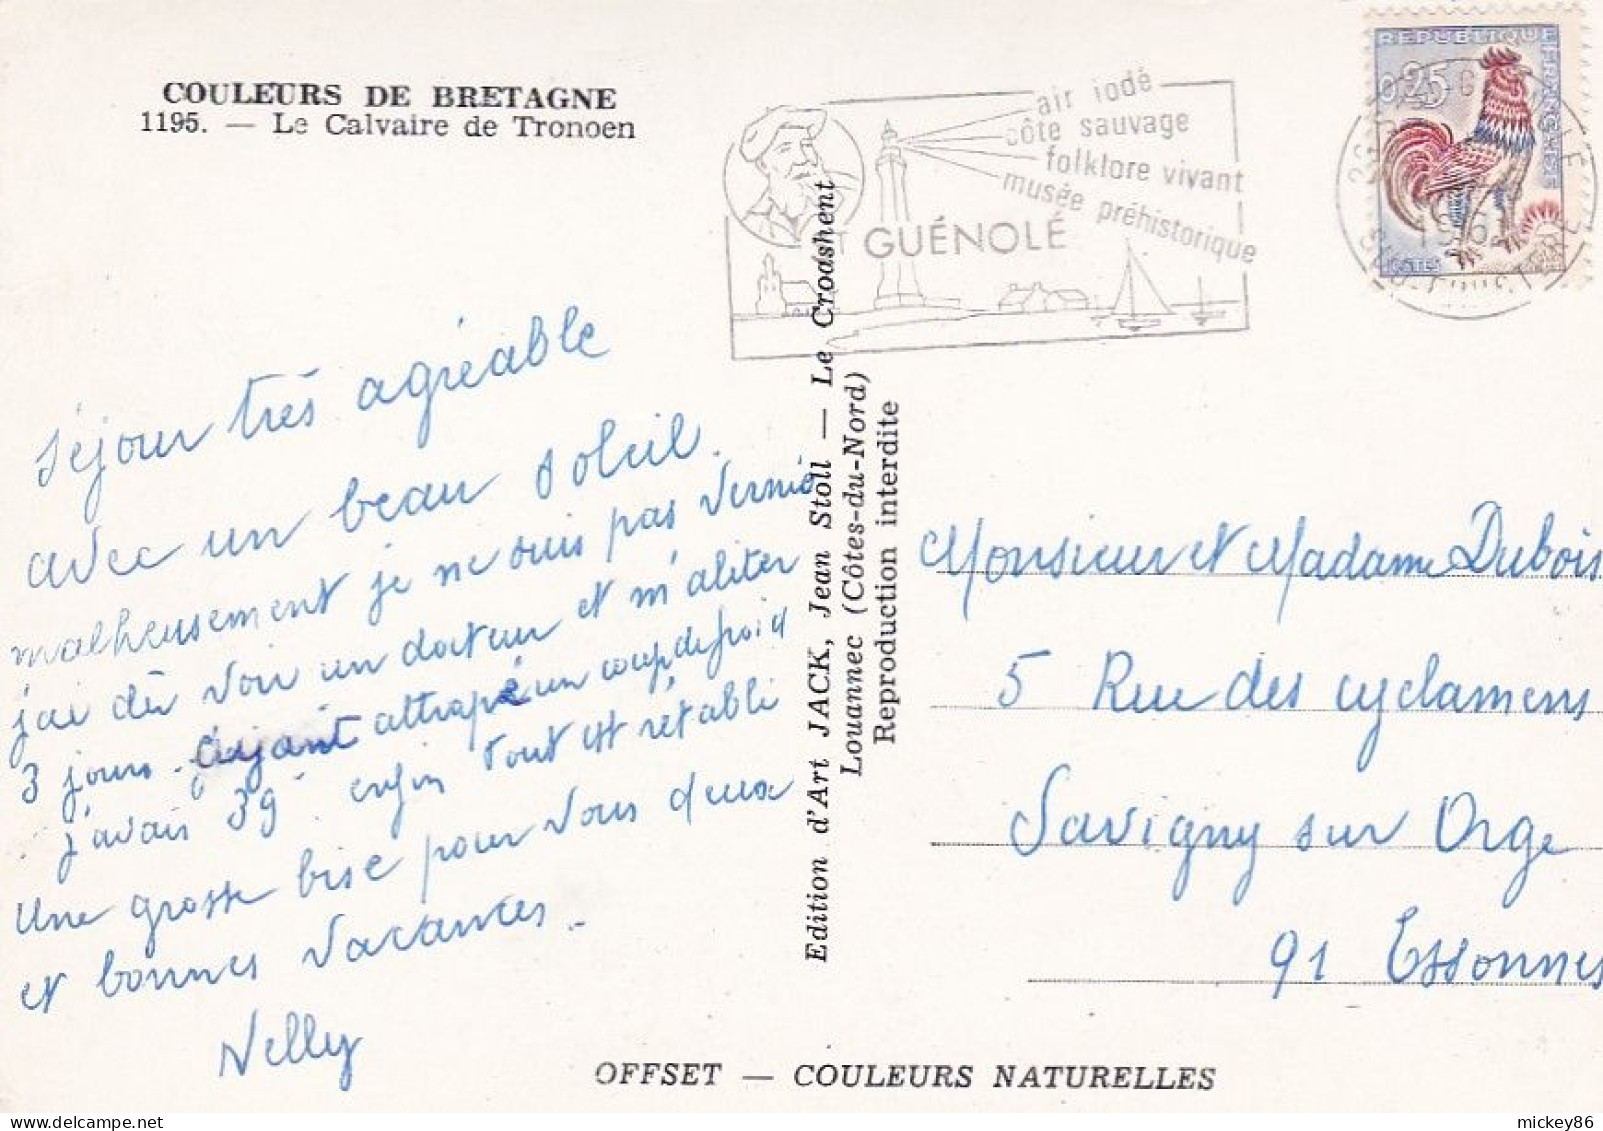 COULEURS DE BRETAGNE
1195. — Le Calvaire de Tronoen
air iodé
côte sauvage
folklore vivant
musée préhistorique
ST GUÉNOLÉ
REPUBLIQUE FRANÇAISE
0,25
POSTES
séjour très agréable
avec un beau soleil.
malheusement je ne suis pas vernie
j'ai dû voir un docteur et m'aliter
3 jours. ayant attrapé un coup de froid
j'avais 39° enfin tout est rétabli
Une grosse bise pour vous deux
et bonnes vacances.
Nelly
Edition d'Art JACK, Jean Stoll — Le Croashent
Louannec (Côtes-du-Nord)
Reproduction interdite
Monsieur et Madame Dubois
5 Rue des cyclamens
Savigny sur Orge
91 Essonnes
OFFSET — COULEURS NATURELLES
mickey86